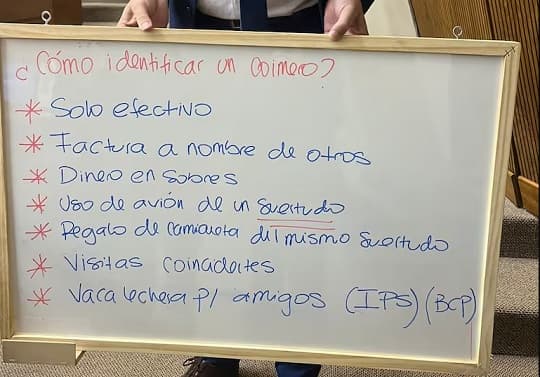 ¿Cómo identificar un coimero?
* Solo efectivo
* Factura a nombre de otros
* Dinero en sobres
* Uso de avión de un suertudo
* Regalo de camioneta del mismo suertudo
* Visitas coinadertes
* Vaca lechera p/ amigos (IPS) (BCP)